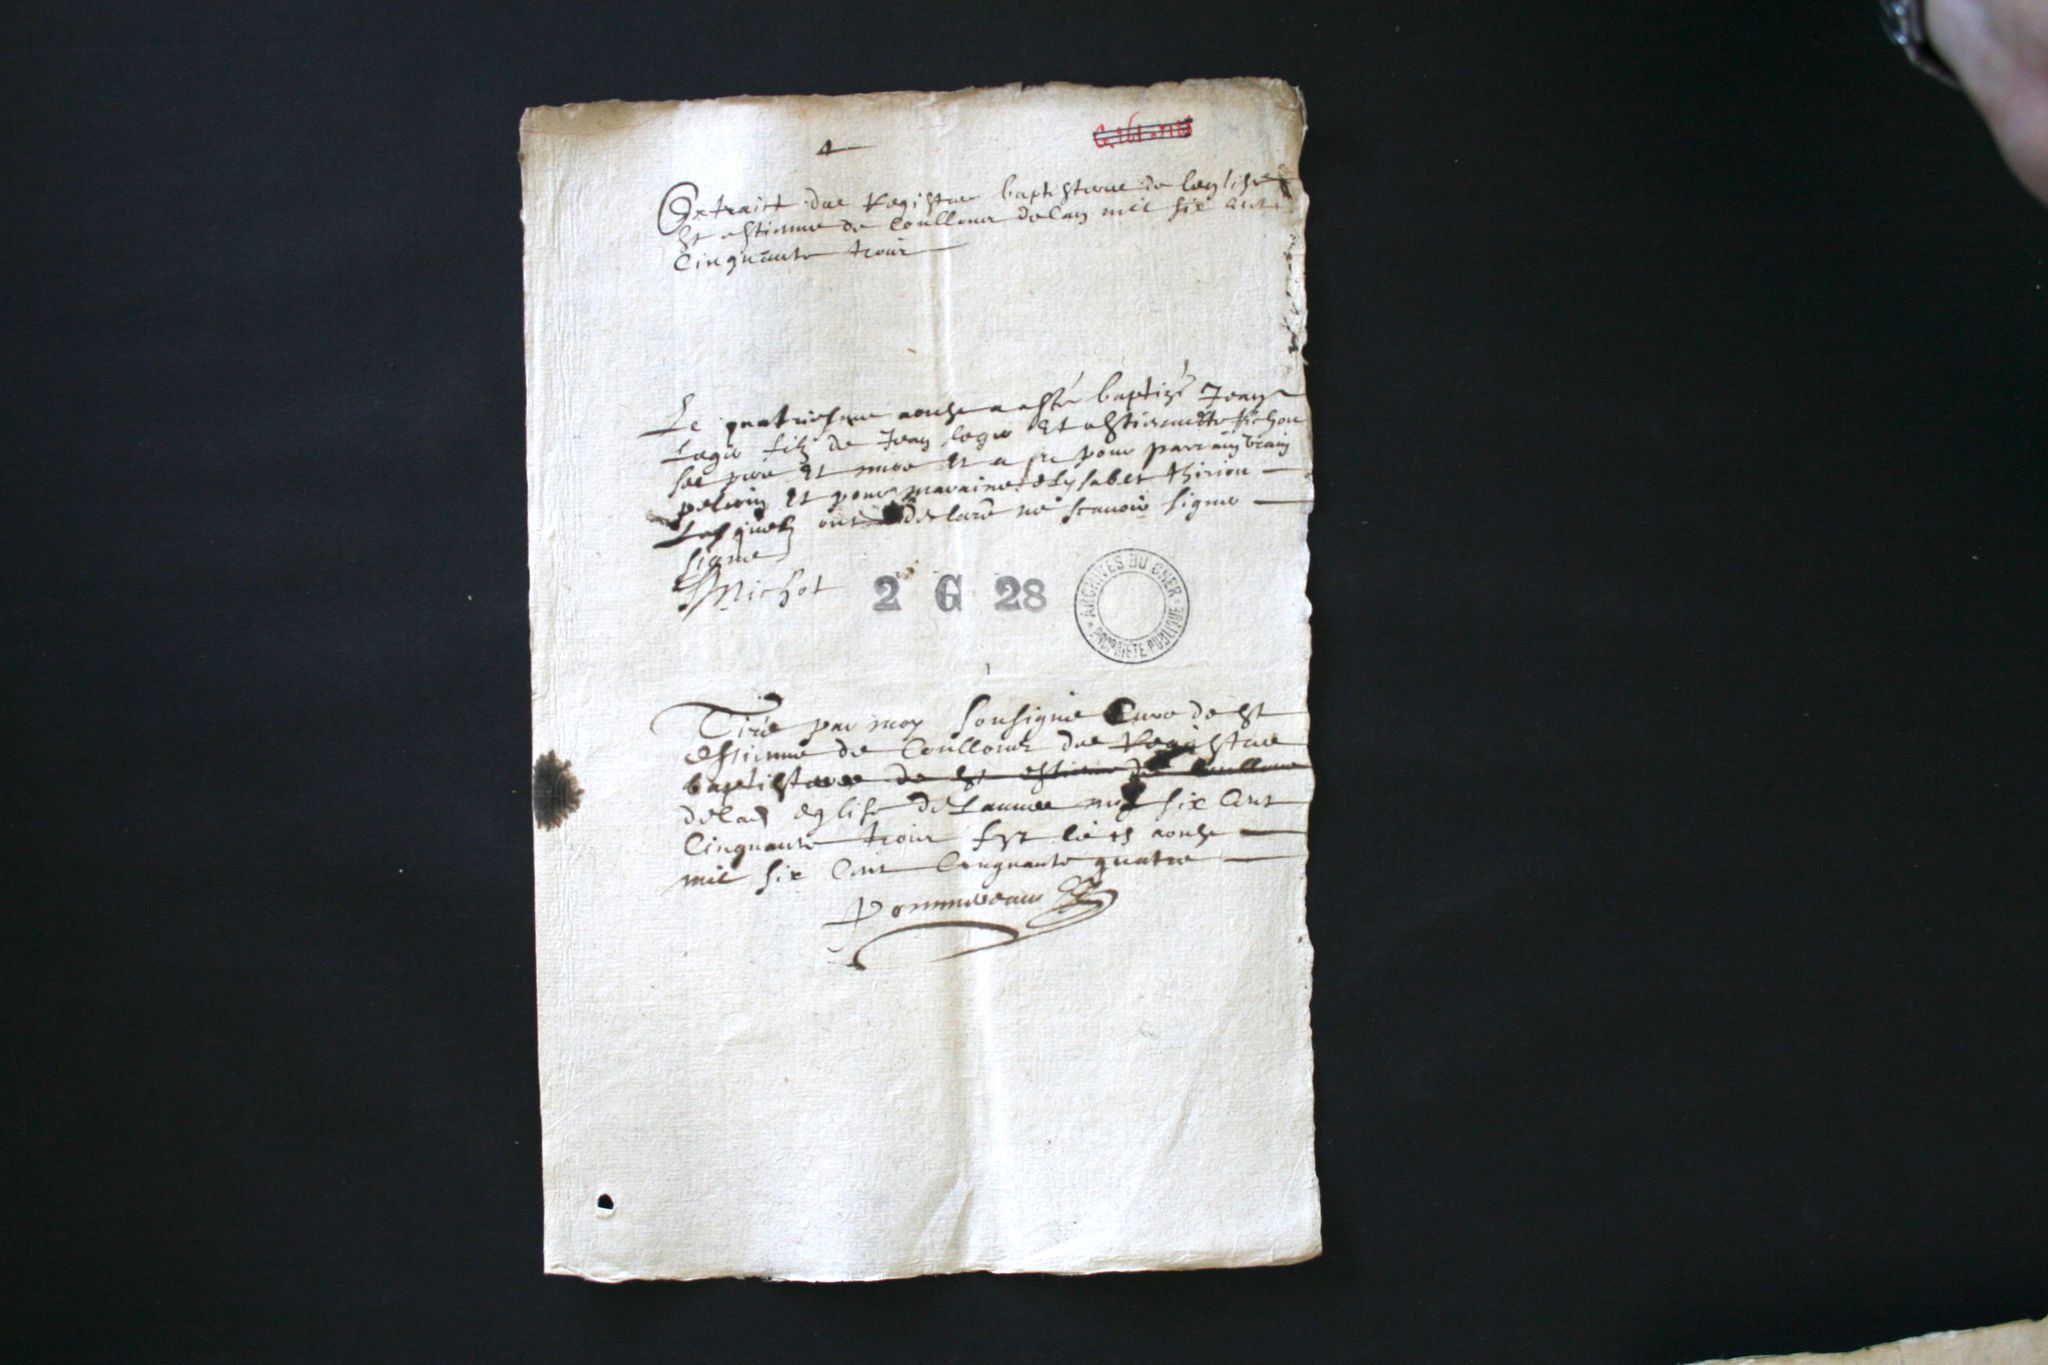 Extraict du Registre baptistere de leglise
St estienne de Coullons de lan mil six cent
Cinquante trois
Le quatriesme aoust a esté baptizé Jean
fils de Jean et estiennette
ses pere et mere et a eu pour parrain
et pour maraine elysabet thirion
Lesquelz ont declaré ne scavoir signe
signe
Michot
2 G 28
ARCHIVES DU CHER
PROPRIETE PUBLIQUE
Tiré par moy sousigné Curé de St
estienne de Coullons du Registre
baptistere de St estienne de Coullons
de lad eglise de Lannee mil six Cent
Cinquante trois fet le 15 aoust
mil six Cent Cinquante quatre